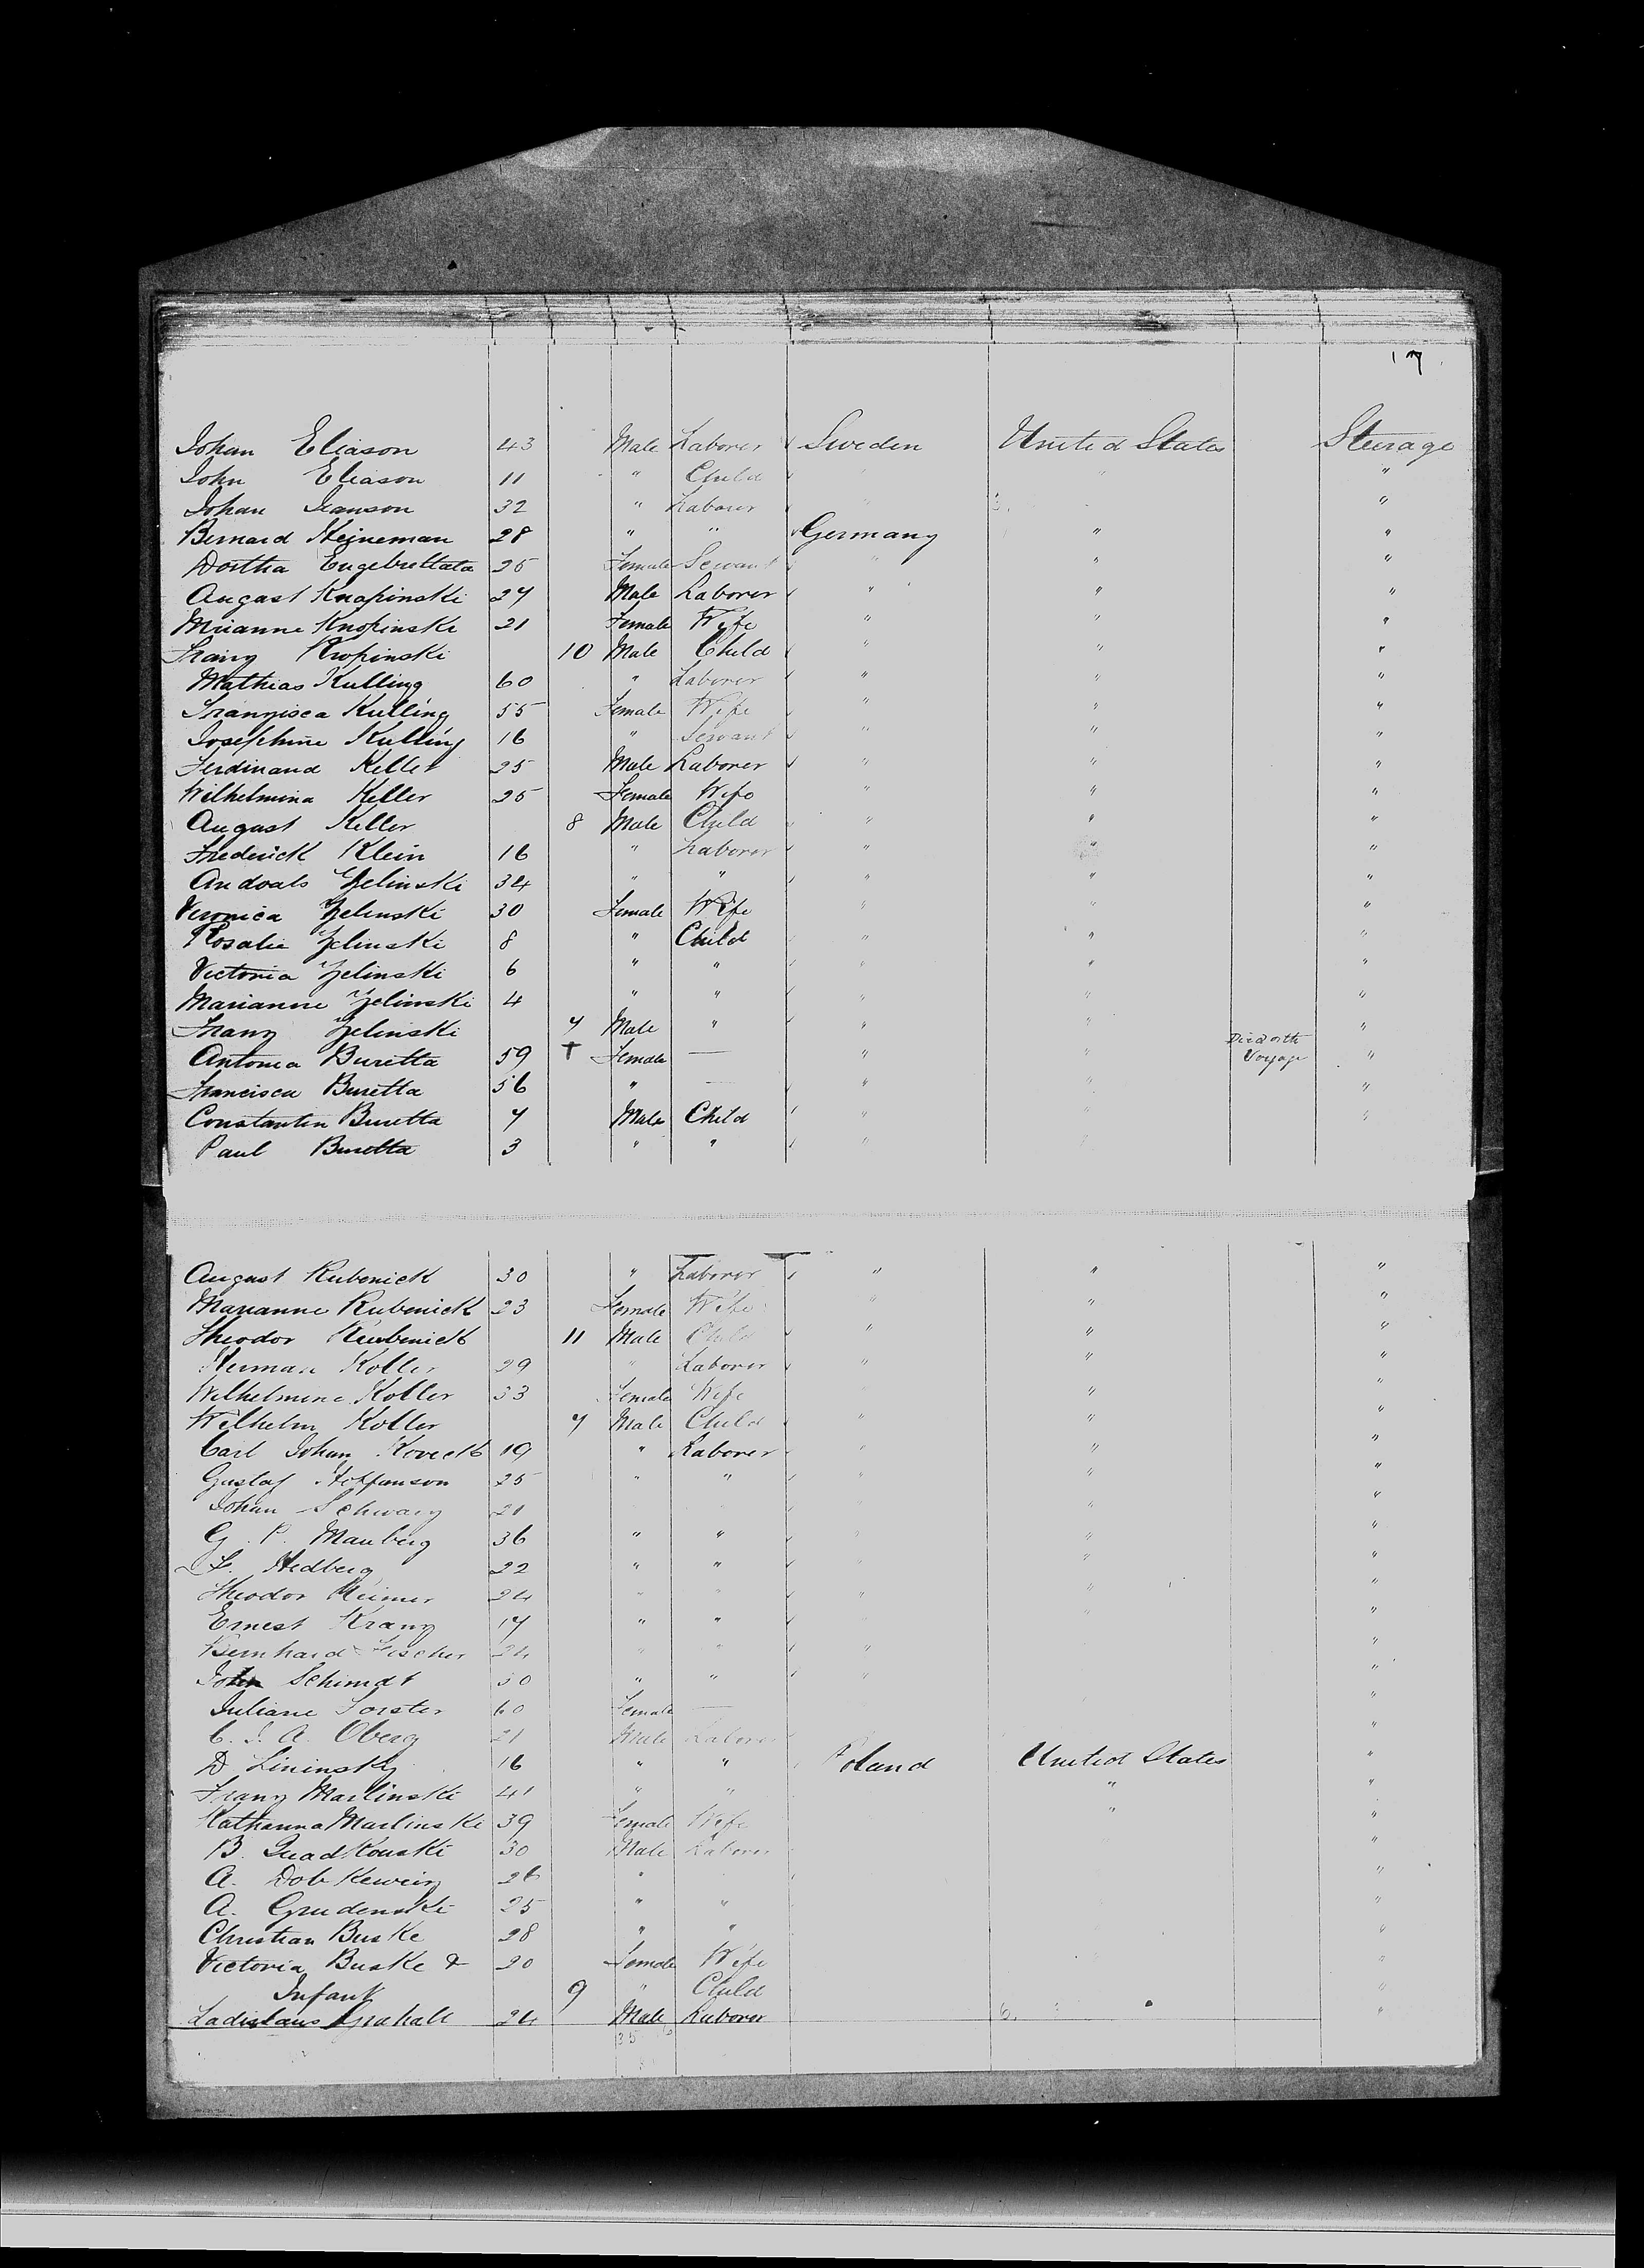 17
Johan Eliason 43 Male Laborer Sweden United States Steerage
John Eliason 11 " Child " " "
Johan Isanson 32 " Laborer " "
Bernard Heineman 28 " " Germany " "
Dortha Engebrettata 25 Female Servant " " "
August Knopinski 27 Male Laborer " " "
Mrianne Knopinski 21 Female Wife " " "
Franz Knopinski 10 Male Child " " "
Mathias Kulling 60 " Laborer " " "
Franzisca Kulling 55 Female Wife " " "
Josephine Kulling 16 " Servant " " "
Ferdinand Keller 25 Male Laborer " " "
Wilhelmina Keller 25 Female Wife " " "
August Keller 8 Male Child " " "
Frederick Klein 16 " Laborer " " "
Zelinski 34 " " " " "
Veronica Zelinski 30 Female Wife " " "
Rosalie Zelinski 8 " Child " " "
Victoria Zelinski 6 " " " " "
Marianne Zelinski 4 " " " " "
Franz Zelinski 7 Male " " " "
Antonia Buretta 59 † Female — " " Died on the Voyage "
Francisca Buretta 56 " — " " "
Constantin Buretta 7 Male Child " " "
Paul Buretta 3 " " " " "
August Rubenick 30 " Laborer " " "
Marianne Rubenick 23 Female Wife " " "
Theodor Rubenick 11 Male Child " " "
Herman Koller 29 " Laborer " " "
Wilhelmine Koller 33 Female Wife " "
Wilhelm Koller 7 Male Child " " "
Carl Johan 19 " Laborer " " "
Gustaf 25 " " " " "
Johan Schwarz 21 " "
G. P. Manberg 36 " " " " "
Hedberg 22 " " " "
Theodor Reimer 24 " " " " "
Ernest Kranz 17 " " " "
Bernhard Fischer 24 " " " "
John Schimdt 30 " " " "
Juliane Forster 60 Female — "
C. J. A. Oberg 21 Male Laborer "
D Lininsky 16 " " Poland United States "
Franz Marlinski 41 " " " "
Katharina Marlinski 39 Female Wife " "
B. 30 Male Laborer "
A. 26 " "
A. Grudenski 25 " " "
Christian Buske 28 " " "
Victoria Buske & 20 Female Wife "
Infant 9 " Child "
Ladislaus 24 Male Laborer "
35